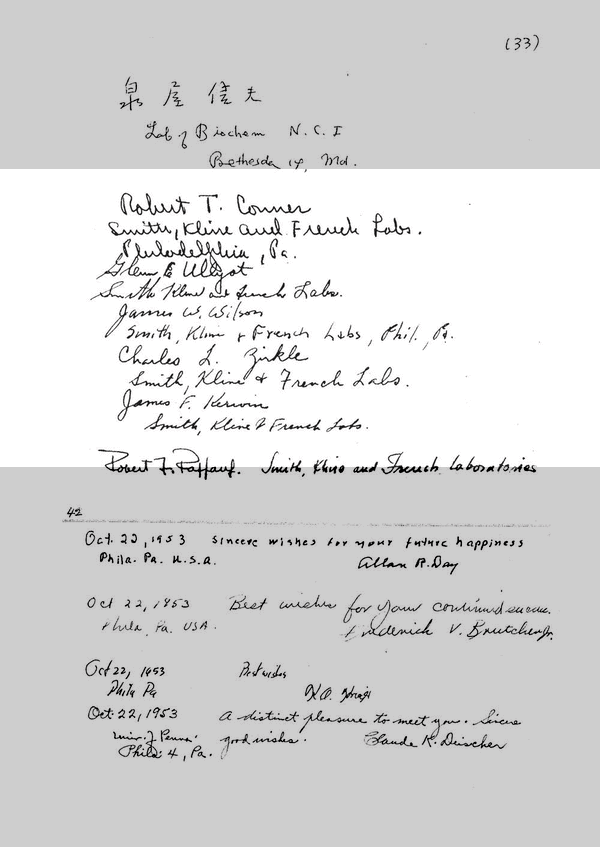 (33)
泉屋信夫
Lab of Biochem N.C.I
Bethesda 14, Md.
Robert T. Conner
Smith, Kline and French Labs.
Philadelphia, Pa.
Glenn E. Ullyot
Smith Kline and French Labs.
James W. Wilson
Smith, Kline & French Labs, Phil., Pa.
Charles L. Zirkle
Smith, Kline & French Labs.
James F. Kerwin
Smith, Kline & French Labs.
Robert F. Smith, Kline and French Laboratories
42
Oct. 22, 1953 Sincere wishes for your future happiness
Phila. Pa. U.S.A. Allan R. Day
Oct 22, 1953 Best wishes for your continued success.
Phila, Pa. USA. Frederick V. Brutcher Jr.
Oct 22, 1953 Best wishes
Phila Pa
Oct. 22, 1953 A distinct pleasure to meet you. Sincere
Univ. of Penna. good wishes. Claude K. Deischer
Phila. 4, Pa.